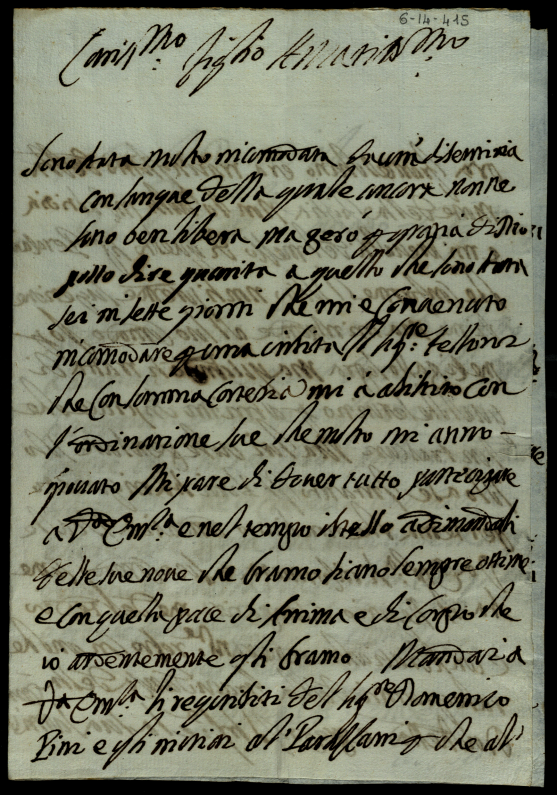 6-14-415
Cariss.mo figlio Amatiss.mo
Sono stata molto incomodata da una disenteria
con sangue della quale ancora non ne
sono ben libera ma però per grazia di Dio
posso dire guarita a quello che sono stata
sei in sette giorni che mi è convenuto
incomodare per una visita il Sig.re Bellorzi
che con somma cortesia mi à assistito con
l'ordinazione sue che molto mi anno
giovato Mi pare di dover tutto partecipare
a V.a Em.za e nel tempo istesso adimandali
delle sue nove che bramo siano sempre ottime
e con quella pace di Anima e di Corpo che
io ardentemente gli bramo Mandai a
V.a Em.za li requisiti del Sig.re Domenico
Pini e gli inviai al Parasani che al